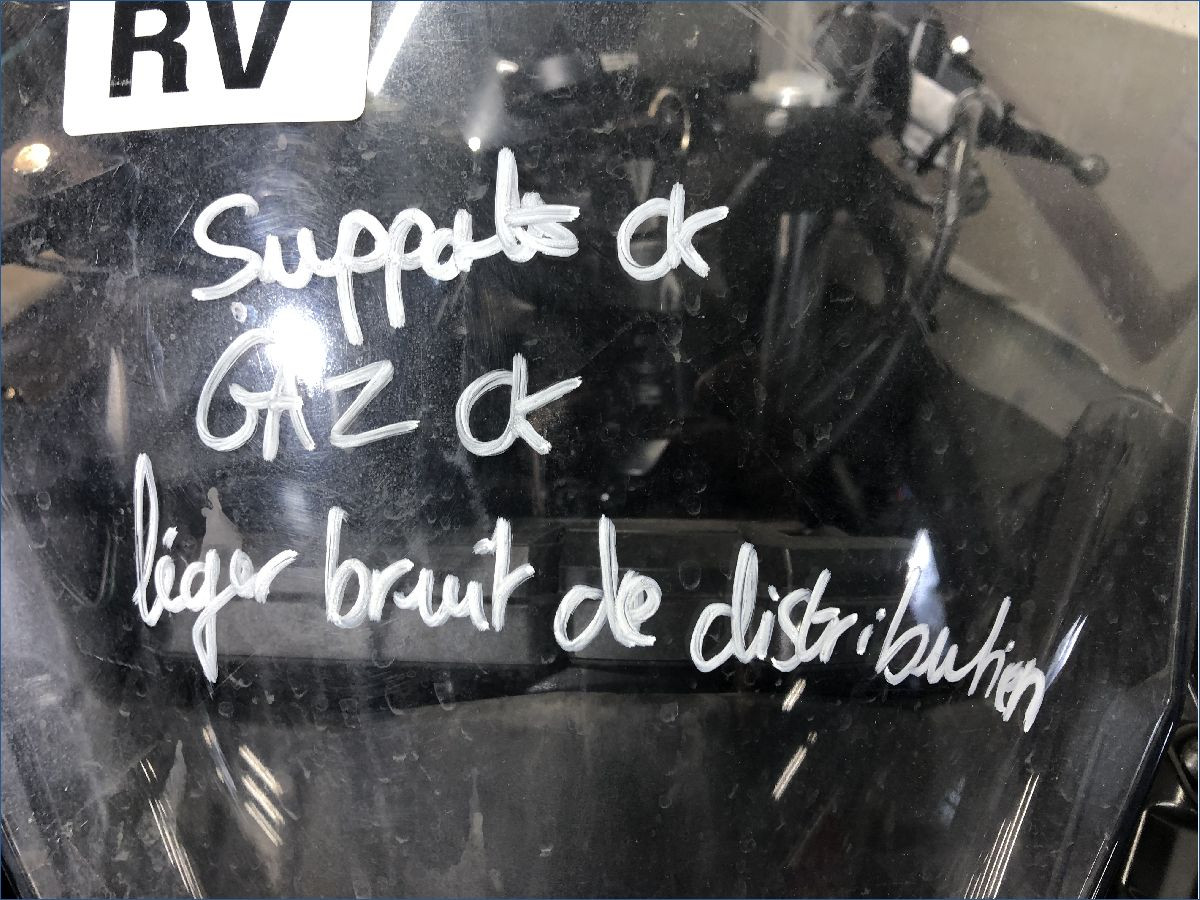 RV
Supports ok
GAZ ok
léger bruit de distribution